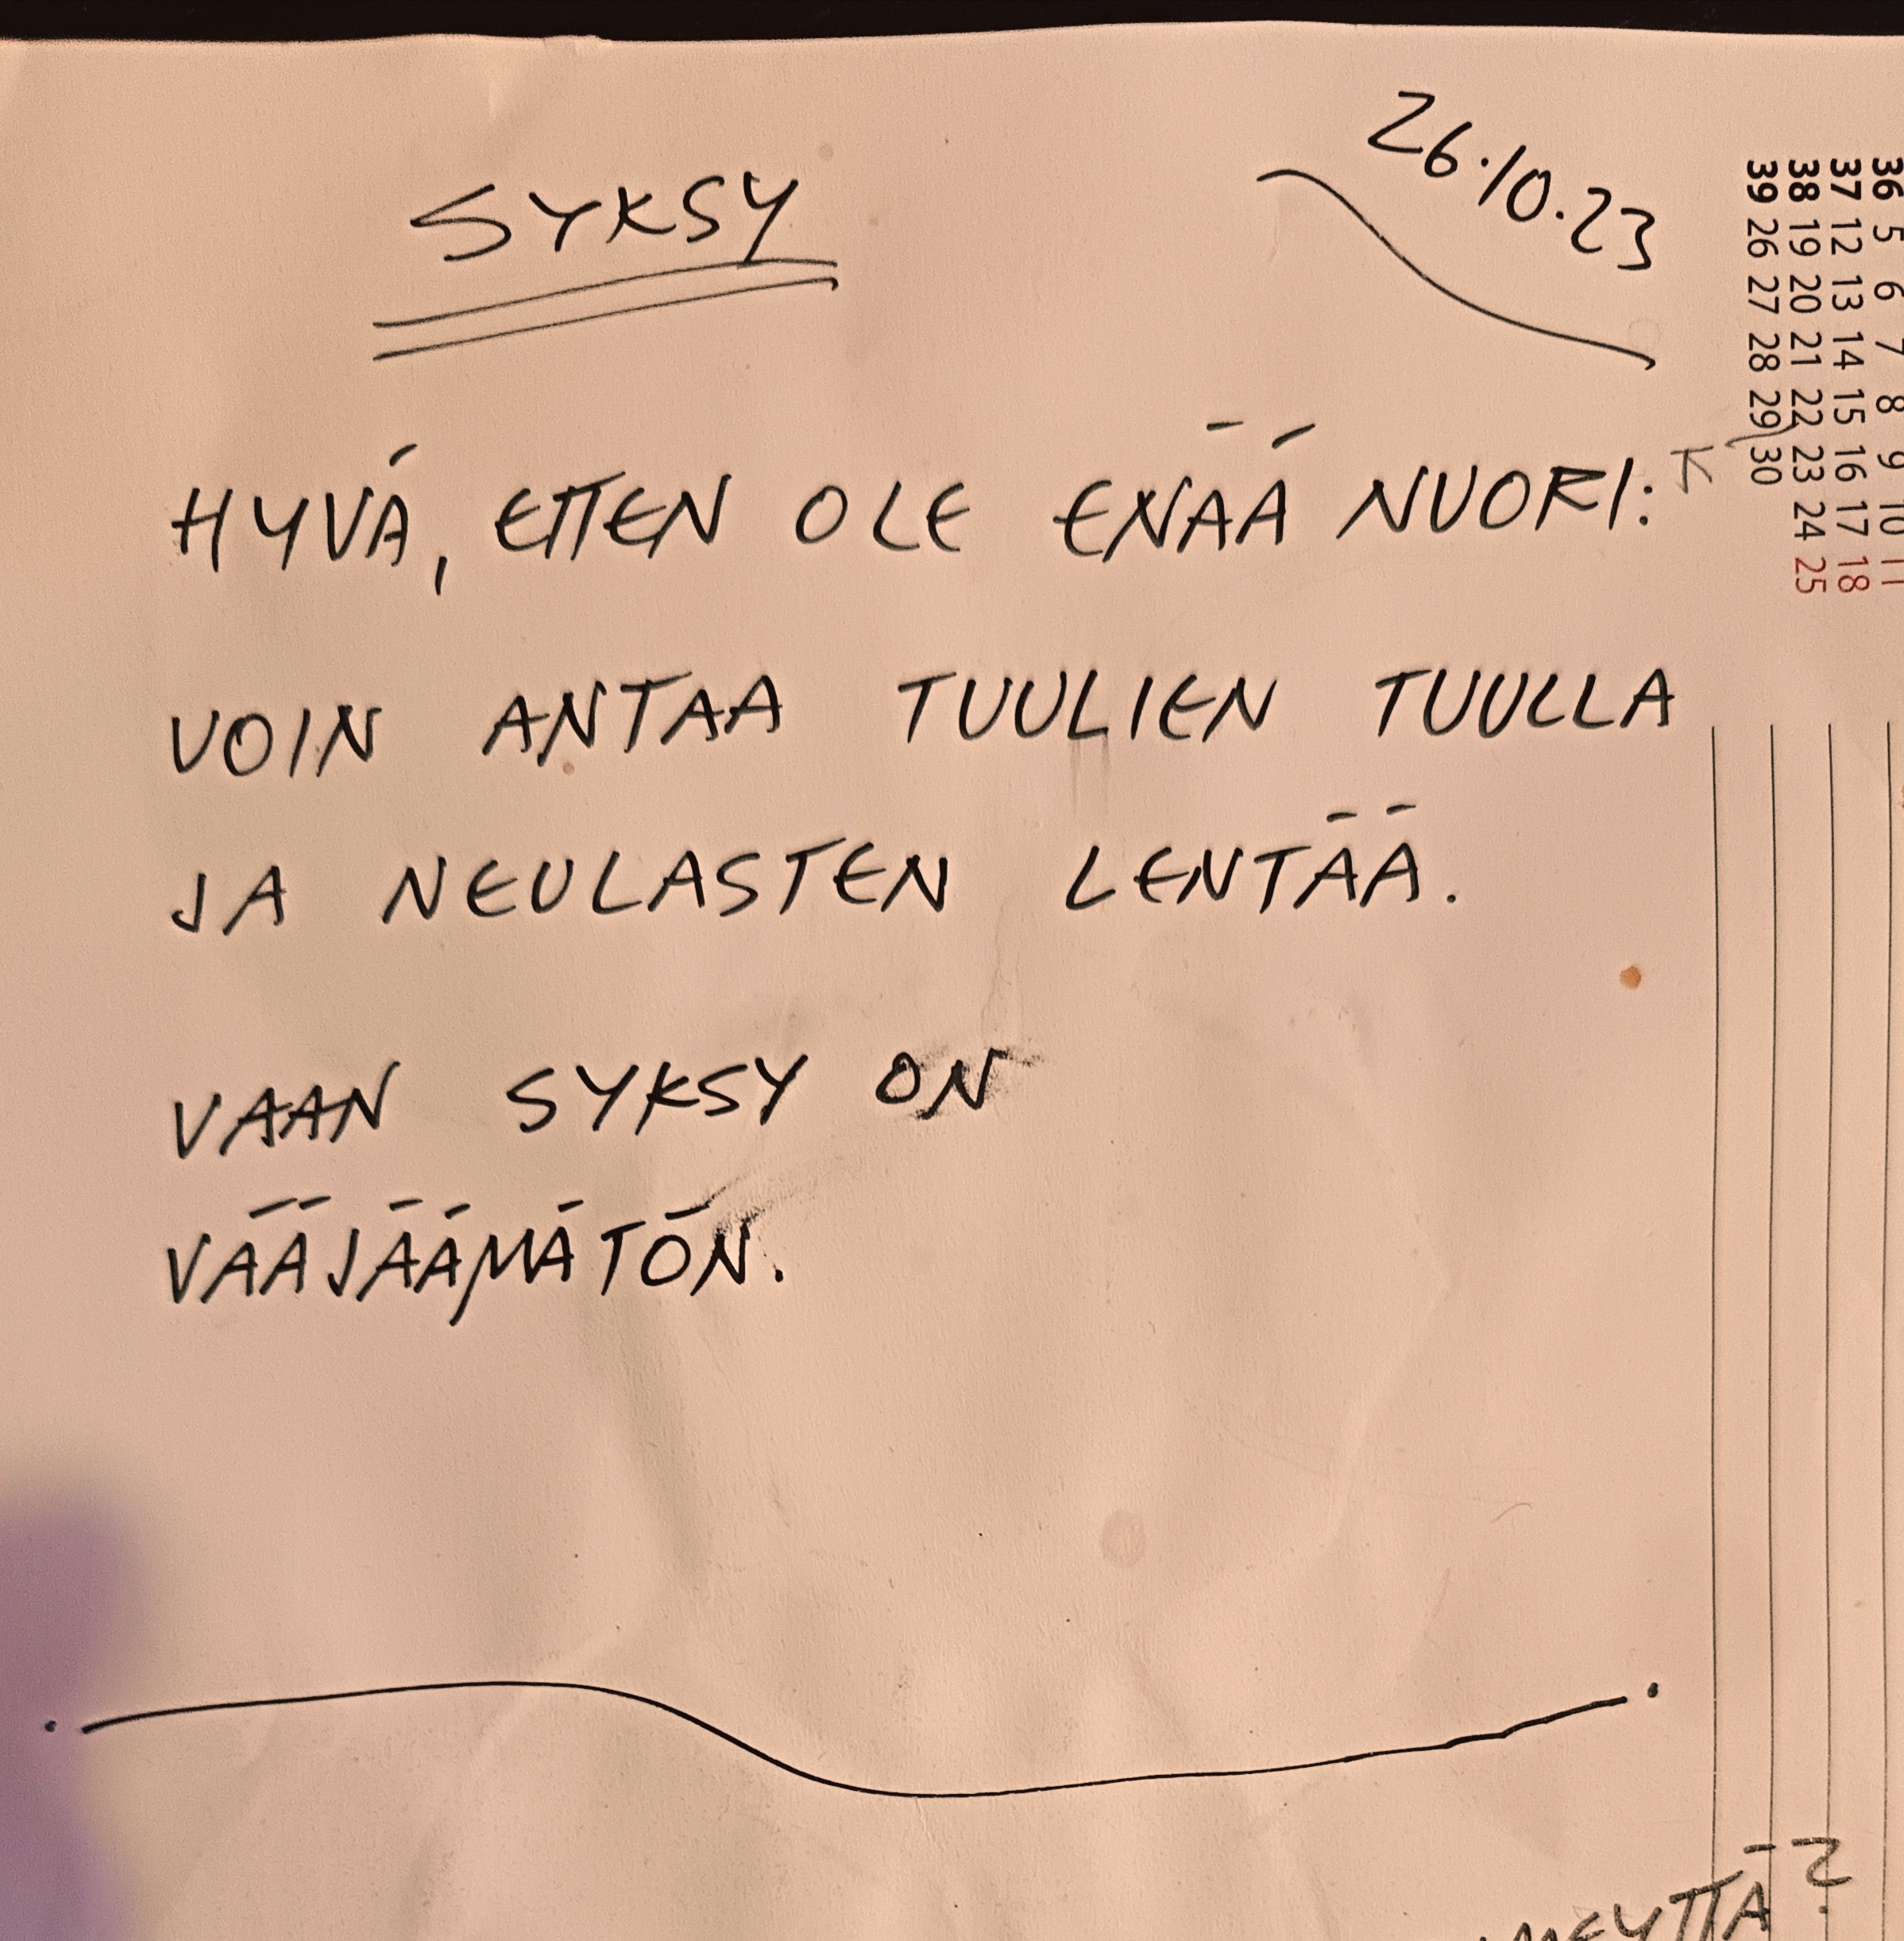 SYKSY
26.10.23
HYVÄ, ETTEN OLE ENÄÄ NUORI:
VOIN ANTAA TUULIEN TUULLA
JA NEULASTEN LENTÄÄ.
VAAN SYKSY ON
VÄÄJÄÄMÄTÖN.
36 5 6 7 8 9 10 11
37 12 13 14 15 16 17 18
38 19 20 21 22 23 24 25
39 26 27 28 29 30
K